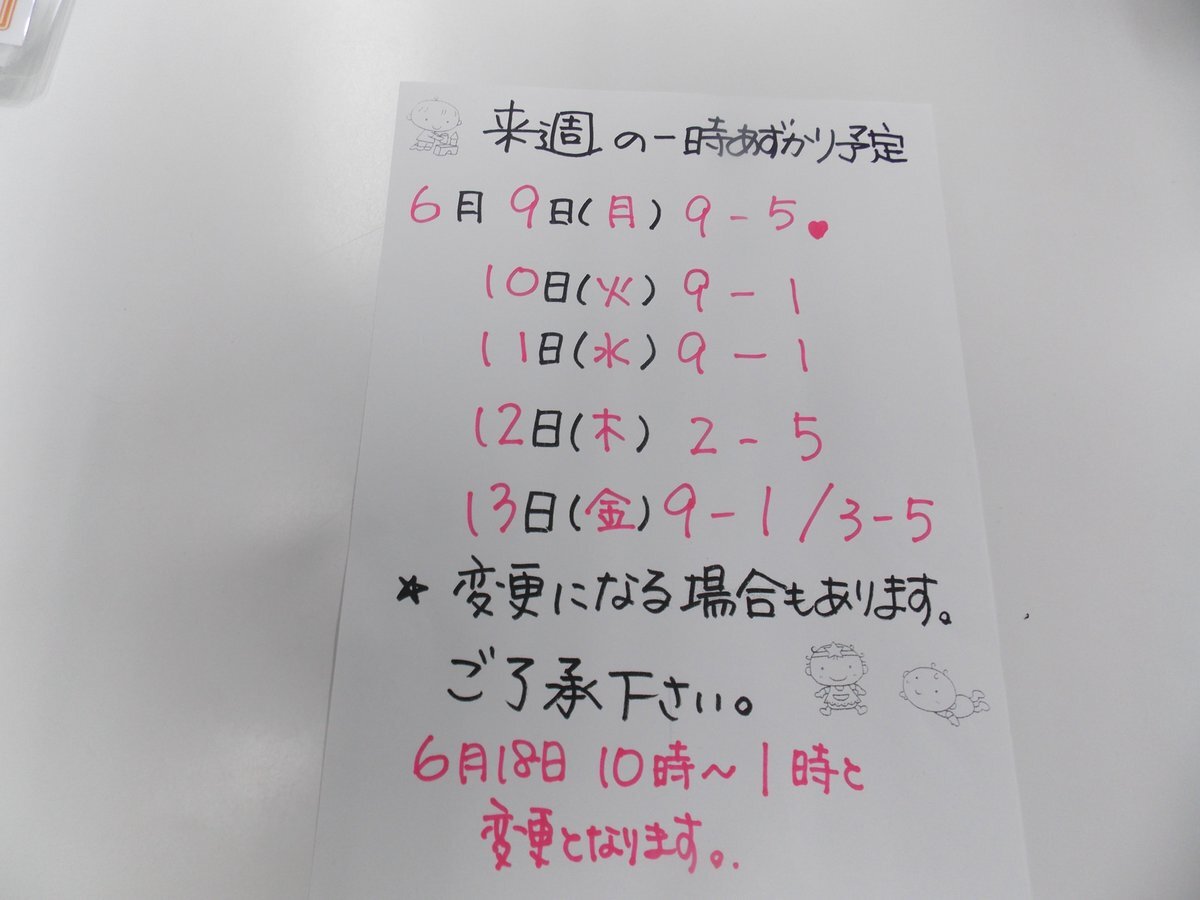 来週の一時あずかり予定
6月9日(月) 9-5♥
10日(火) 9-1
11日(水) 9-1
12日(木) 2-5
13日(金) 9-1/3-5
★変更になる場合もあります。
ご了承下さい。
6月18日 10時~1時と
変更となります。